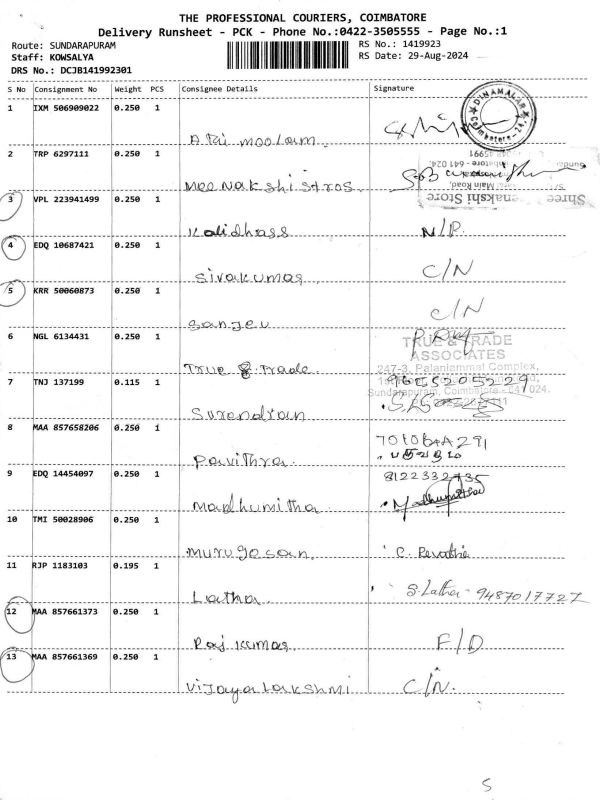 THE PROFESSIONAL COURIERS, COIMBATORE
Delivery Runsheet - PCK - Phone No.:0422-3505555 - Page No.:1
Route: SUNDARAPURAM RS No.: 1419923
Staff: KOWSALYA RS Date: 29-Aug-2024
DRS No.: DCJB141992301
S No Consignment No Weight PCS Consignee Details Signature
1 IXM 506909022 0.250 1
DINAMALAR
Coimbatore
Moolam
2 TRP 6297111 0.250 1
Meenakshi stros
Shree Meenakshi Store
Main Road
641 024
3 VPL 223941499 0.250 1
Kalidhass N/P.
4 EDQ 10687421 0.250 1
Sivakumar C/N
5 KRR 50060873 0.250 1
Sanjev C/N
6 NGL 6134431 0.250 1
TRUE & TRADE
ASSOCIATES
247-3, Palaniammal Complex,
True & Trade
7 TNJ 137199 0.115 1
9655205229
Sundarapuram, Coimbatore - 641 024.
Surendran
8 MAA 857658206 0.250 1
Pavithra
9 EDQ 14454097 0.250 1
8122332735
Madhumitha Madhumitha
10 TMI 50028906 0.250 1
Murugesan C. Revathi
11 RJP 1183103 0.195 1
Latha S. Latha 9487017727
12 MAA 857661373 0.250 1
Raj Kumar F/D
13 MAA 857661369 0.250 1
Vijaya Lakshmi C/N.
5